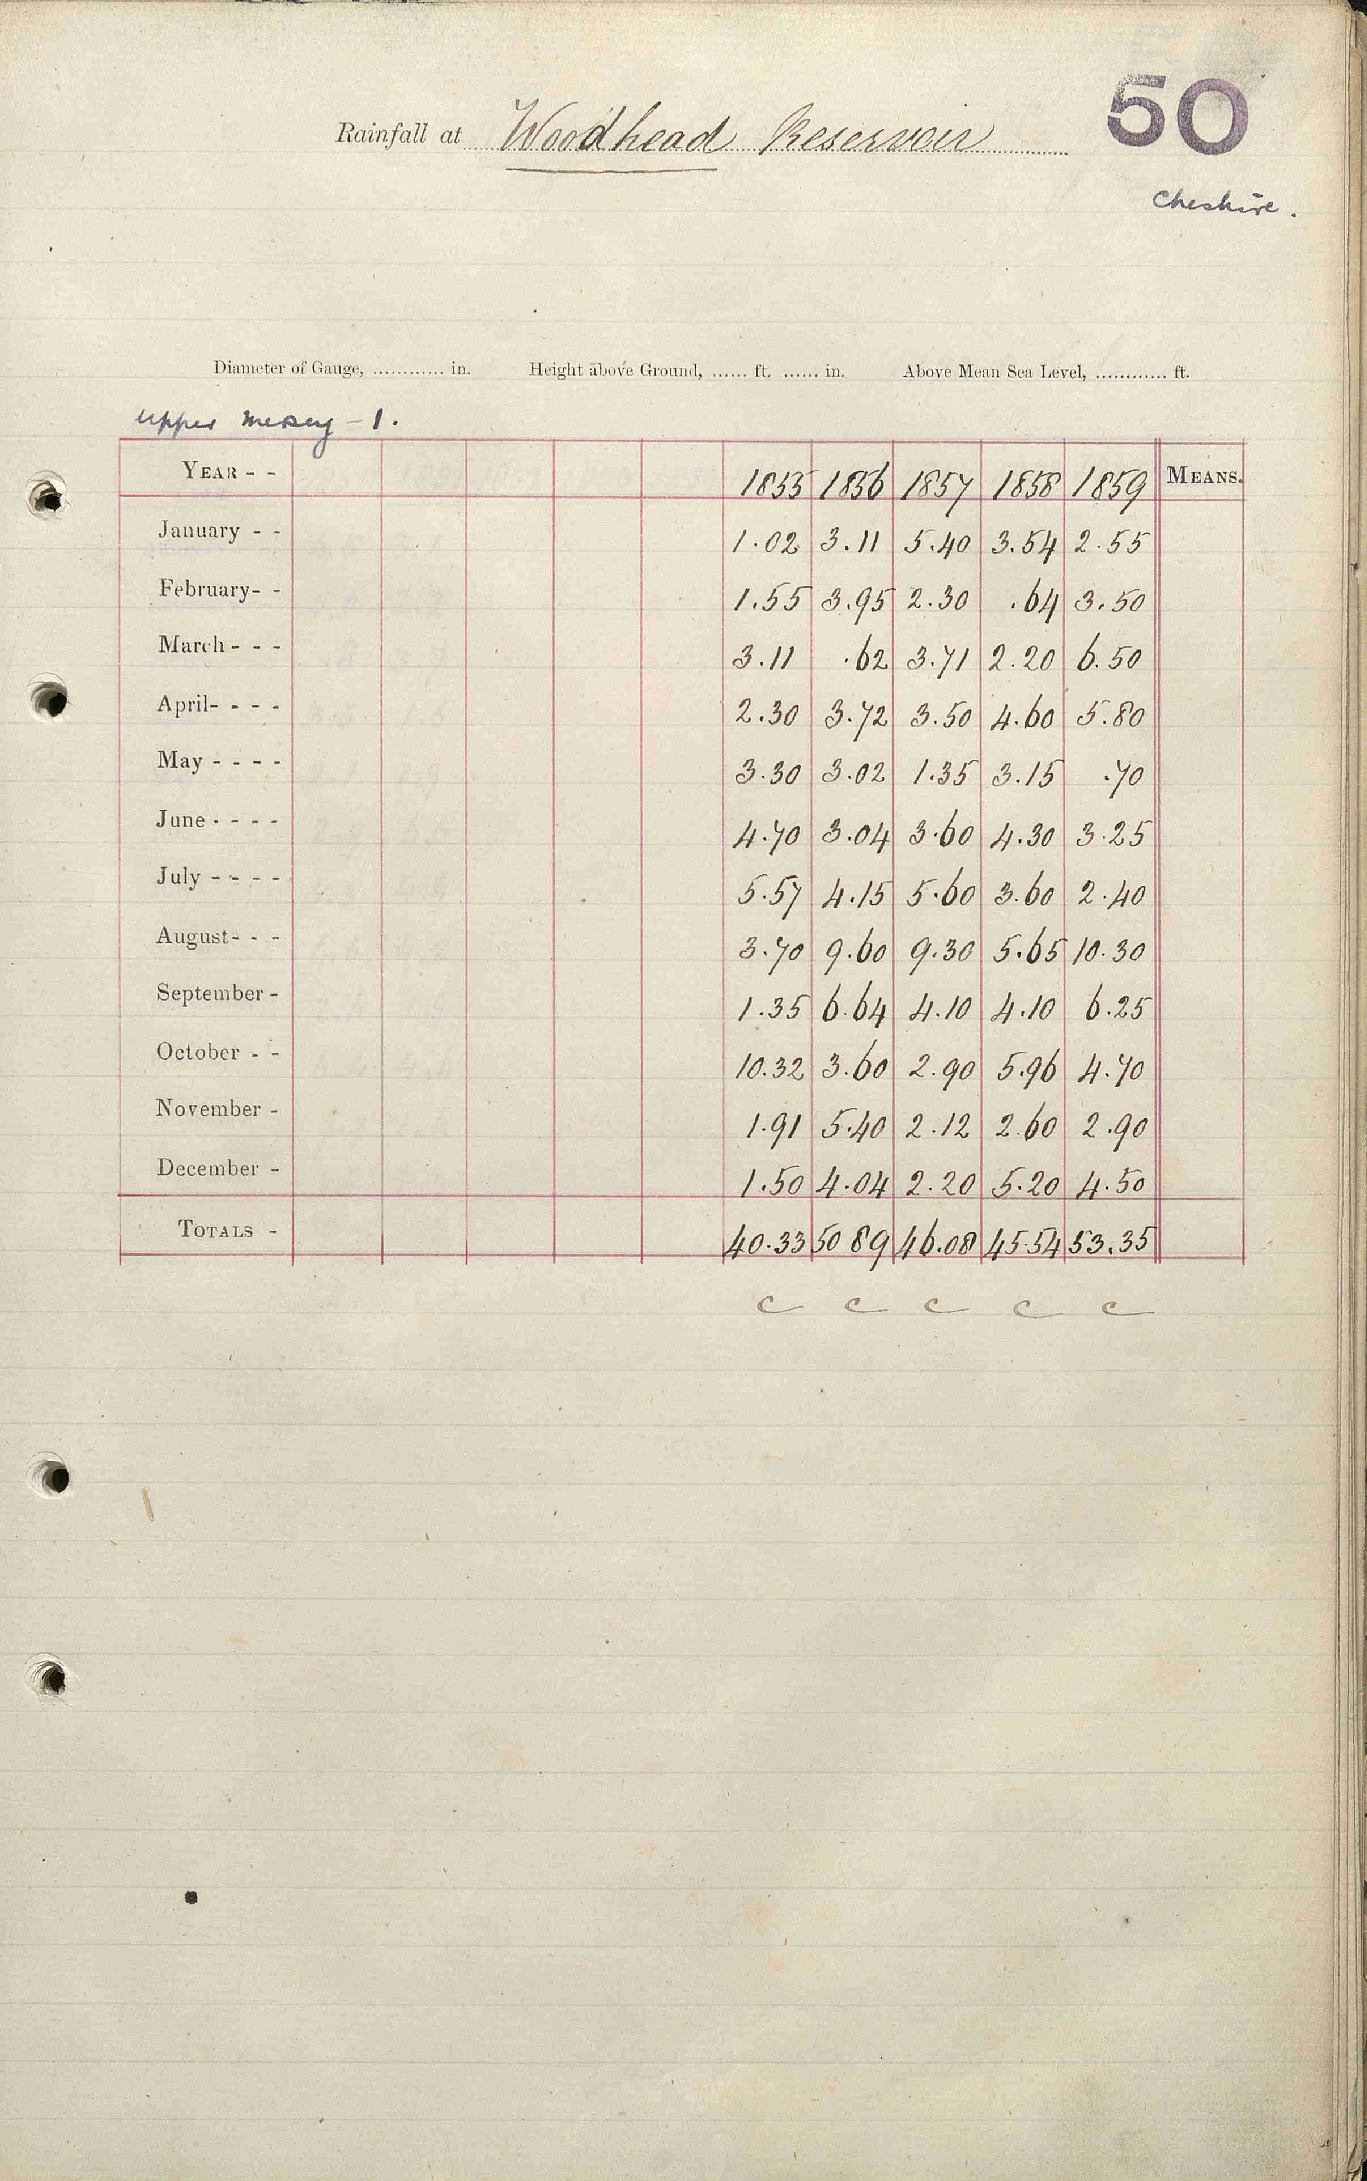 50
Rainfall at Woodhead Reservoir
Cheshire.
Diameter of Gauge, ............ in. Height above Ground, ...... ft. ...... in. Above Mean Sea Level, ............ ft.
Upper Mersey - 1.
YEAR - - 1855 1856 1857 1858 1859 MEANS.
January - - 1.02 3.11 5.40 3.54 2.55
February- - 1.55 3.95 2.30 .64 3.50
March - - - 3.11 .62 3.71 2.20 6.50
April- - - - 2.30 3.72 3.50 4.60 5.80
May - - - - 3.30 3.02 1.35 3.15 .70
June - - - - 4.70 3.04 3.60 4.30 3.25
July - - - - 5.57 4.15 5.60 3.60 2.40
August- - - 3.70 9.60 9.30 5.65 10.30
September - 1.35 6.64 4.10 4.10 6.25
October - - 10.32 3.60 2.90 5.96 4.70
November - 1.91 5.40 2.12 2.60 2.90
December - 1.50 4.04 2.20 5.20 4.50
TOTALS - 40.33 50 89 46.08 45.54 53.35
c c c c c